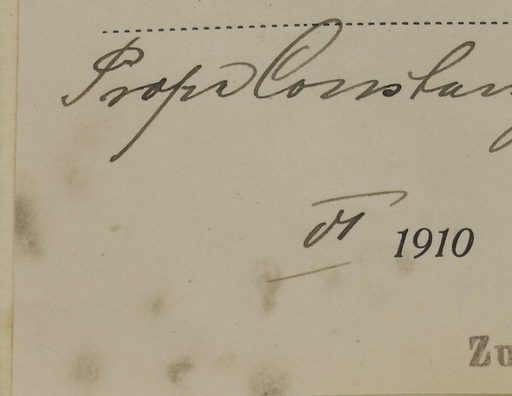 Propr Constan
VI 1910
Zu